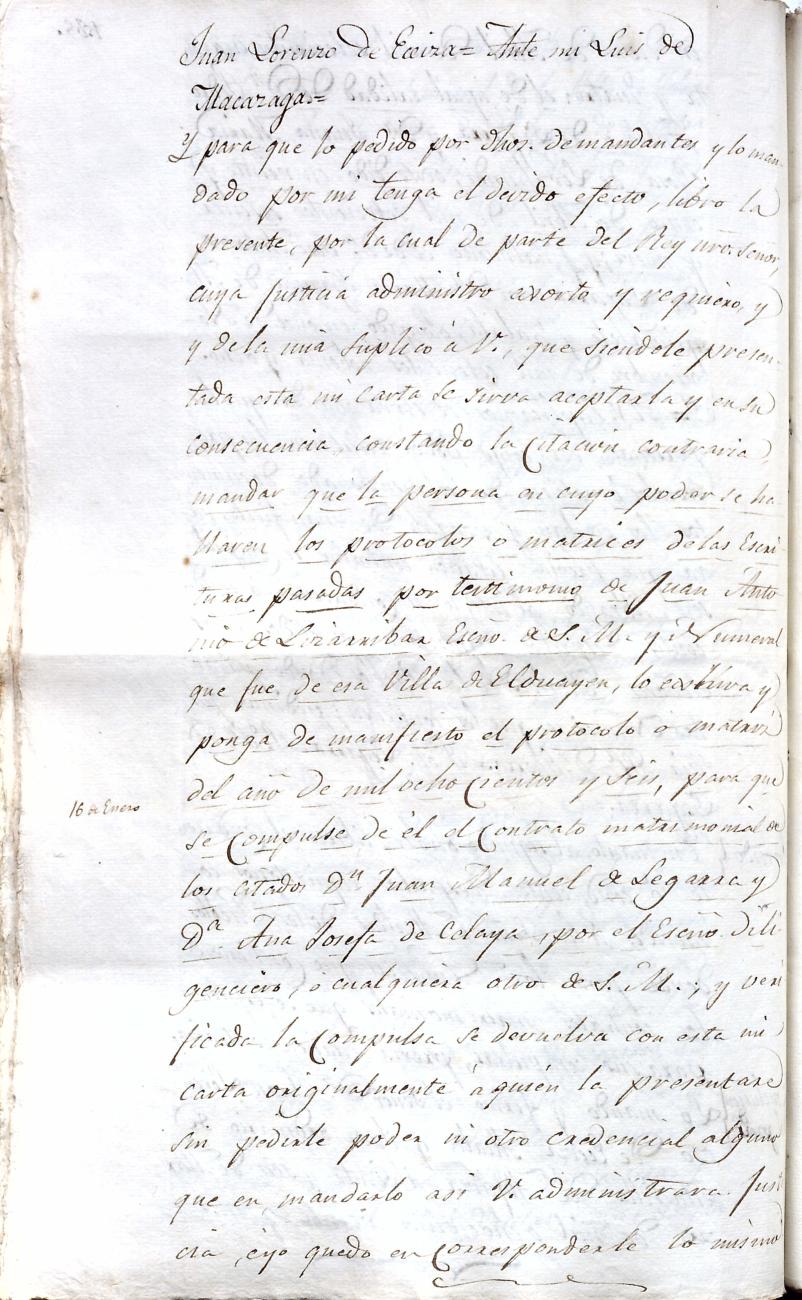 Juan Lorenzo de Eceiza= Ante mi Luis de
Macazaga=
Y para que lo pedido por dhos. demandantes y lo man-
dado por mi tenga el devido efecto, libro la
presente, por la cual de parte del Rey nro. señor,
cuya Justicia administro exorto y requiero, y
y de la mia suplico á V., que siendole presen-
tada esta mi carta se sirva aceptarla y en su
consecuencia, constando la citacion contraria,
mandar que la persona en cuyo poder se ha
llaren los protocolos o matrices de las Escri
turas pasadas por testimonio de Juan Anto
nio de Lizarribar Esno. de S. M. y Numeral
que fue de esa Villa de Elduayen, lo exsiva y
ponga de manifiesto el protocolo o matriz
del año de mil ocho cientos y seis, para que
16 de Enero
se compulse de él el Contrato matrimonial de
los citados Dn. Juan Manuel de Legarra y
Da. Ana Josefa de Celaya, por el Esno. dili
genciero, ó cualquiera otro de S. M.; y veri
ficada la compulsa se devuelva con esta mi
carta originalmente á quien la presentare
sin pedirle poder ni otro credencial alguno
que en mandarlo asi V. administrara Justi
cia, eyo quedo en corresponderle lo mismo